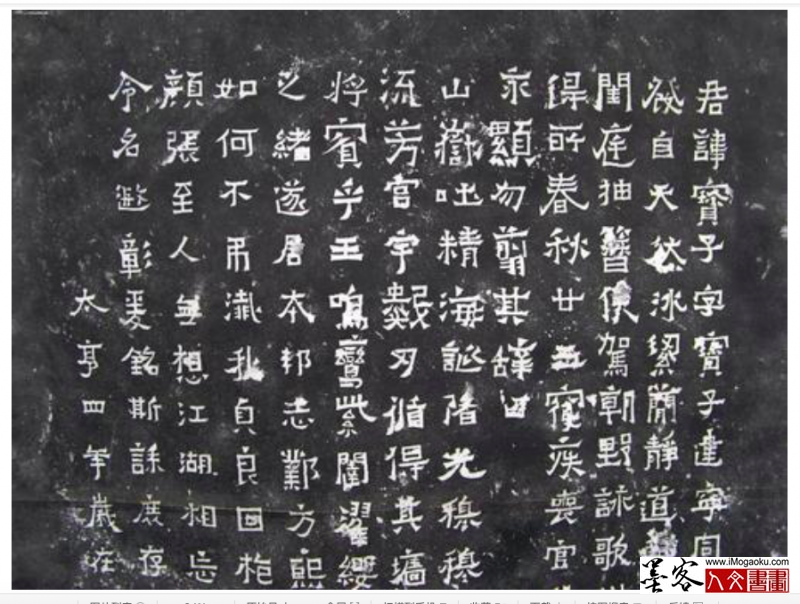 君諱寶子字寶子建寧同
發自天然冰絜簡靜道
閨庭抽簪俟駕朝野詠歌
得所春秋廿五寢疾喪官
永顯勿翦其辭曰
山嶽吐精海誕陼光穆穆
流芳宮宇數刃循得其墻
將賓乎王鳴鸞紫闥濯纓
之緒遂居本邦志鄴方熙
如何不弔殲我貞良回枹
顏張至人無想江湖相忘
令名遐彰爰銘斯誄庶存
太亨四年歲在
墨客
www.iMogaoku.com
人文書畫